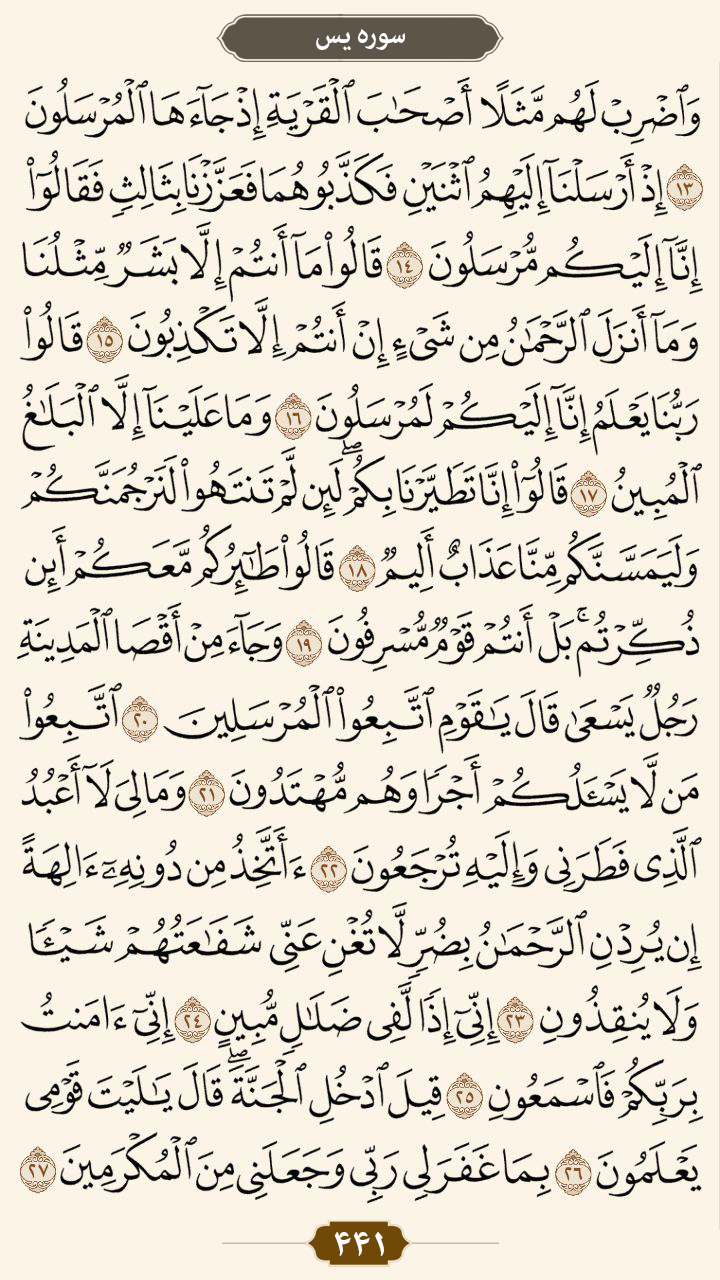 سوره يس
وَٱضۡرِبۡ لَهُم مَّثَلًا أَصۡحَٰبَ ٱلۡقَرۡيَةِ إِذۡ جَآءَهَا ٱلۡمُرۡسَلُونَ
١٣ إِذۡ أَرۡسَلۡنَآ إِلَيۡهِمُ ٱثۡنَيۡنِ فَكَذَّبُوهُمَا فَعَزَّزۡنَا بِثَالِثٖ فَقَالُوٓاْ
إِنَّآ إِلَيۡكُم مُّرۡسَلُونَ ١٤ قَالُواْ مَآ أَنتُمۡ إِلَّا بَشَرٞ مِّثۡلُنَا
وَمَآ أَنزَلَ ٱلرَّحۡمَٰنُ مِن شَيۡءٍ إِنۡ أَنتُمۡ إِلَّا تَكۡذِبُونَ ١٥ قَالُواْ
رَبُّنَا يَعۡلَمُ إِنَّآ إِلَيۡكُمۡ لَمُرۡسَلُونَ ١٦ وَمَا عَلَيۡنَآ إِلَّا ٱلۡبَلَٰغُ
ٱلۡمُبِينُ ١٧ قَالُوٓاْ إِنَّا تَطَيَّرۡنَا بِكُمۡۖ لَئِن لَّمۡ تَنتَهُواْ لَنَرۡجُمَنَّكُمۡ
وَلَيَمَسَّنَّكُم مِّنَّا عَذَابٌ أَلِيمٞ ١٨ قَالُواْ طَٰٓئِرُكُم مَّعَكُمۡ أَئِن
ذُكِّرۡتُمۚ بَلۡ أَنتُمۡ قَوۡمٞ مُّسۡرِفُونَ ١٩ وَجَآءَ مِنۡ أَقۡصَا ٱلۡمَدِينَةِ
رَجُلٞ يَسۡعَىٰ قَالَ يَٰقَوۡمِ ٱتَّبِعُواْ ٱلۡمُرۡسَلِينَ ٢٠ ٱتَّبِعُواْ
مَن لَّا يَسۡـَٔلُكُمۡ أَجۡرٗا وَهُم مُّهۡتَدُونَ ٢١ وَمَالِيَ لَآ أَعۡبُدُ
ٱلَّذِي فَطَرَنِي وَإِلَيۡهِ تُرۡجَعُونَ ٢٢ ءَأَتَّخِذُ مِن دُونِهِۦٓ ءَالِهَةً
إِن يُرِدۡنِ ٱلرَّحۡمَٰنُ بِضُرّٖ لَّا تُغۡنِ عَنِّي شَفَٰعَتُهُمۡ شَيۡـٔٗا
وَلَا يُنقِذُونِ ٢٣ إِنِّيٓ إِذٗا لَّفِي ضَلَٰلٖ مُّبِينٍ ٢٤ إِنِّيٓ ءَامَنتُ
بِرَبِّكُمۡ فَٱسۡمَعُونِ ٢٥ قِيلَ ٱدۡخُلِ ٱلۡجَنَّةَۖ قَالَ يَٰلَيۡتَ قَوۡمِي
يَعۡلَمُونَ ٢٦ بِمَا غَفَرَ لِي رَبِّي وَجَعَلَنِي مِنَ ٱلۡمُكۡرَمِينَ ٢٧
۴۴۱